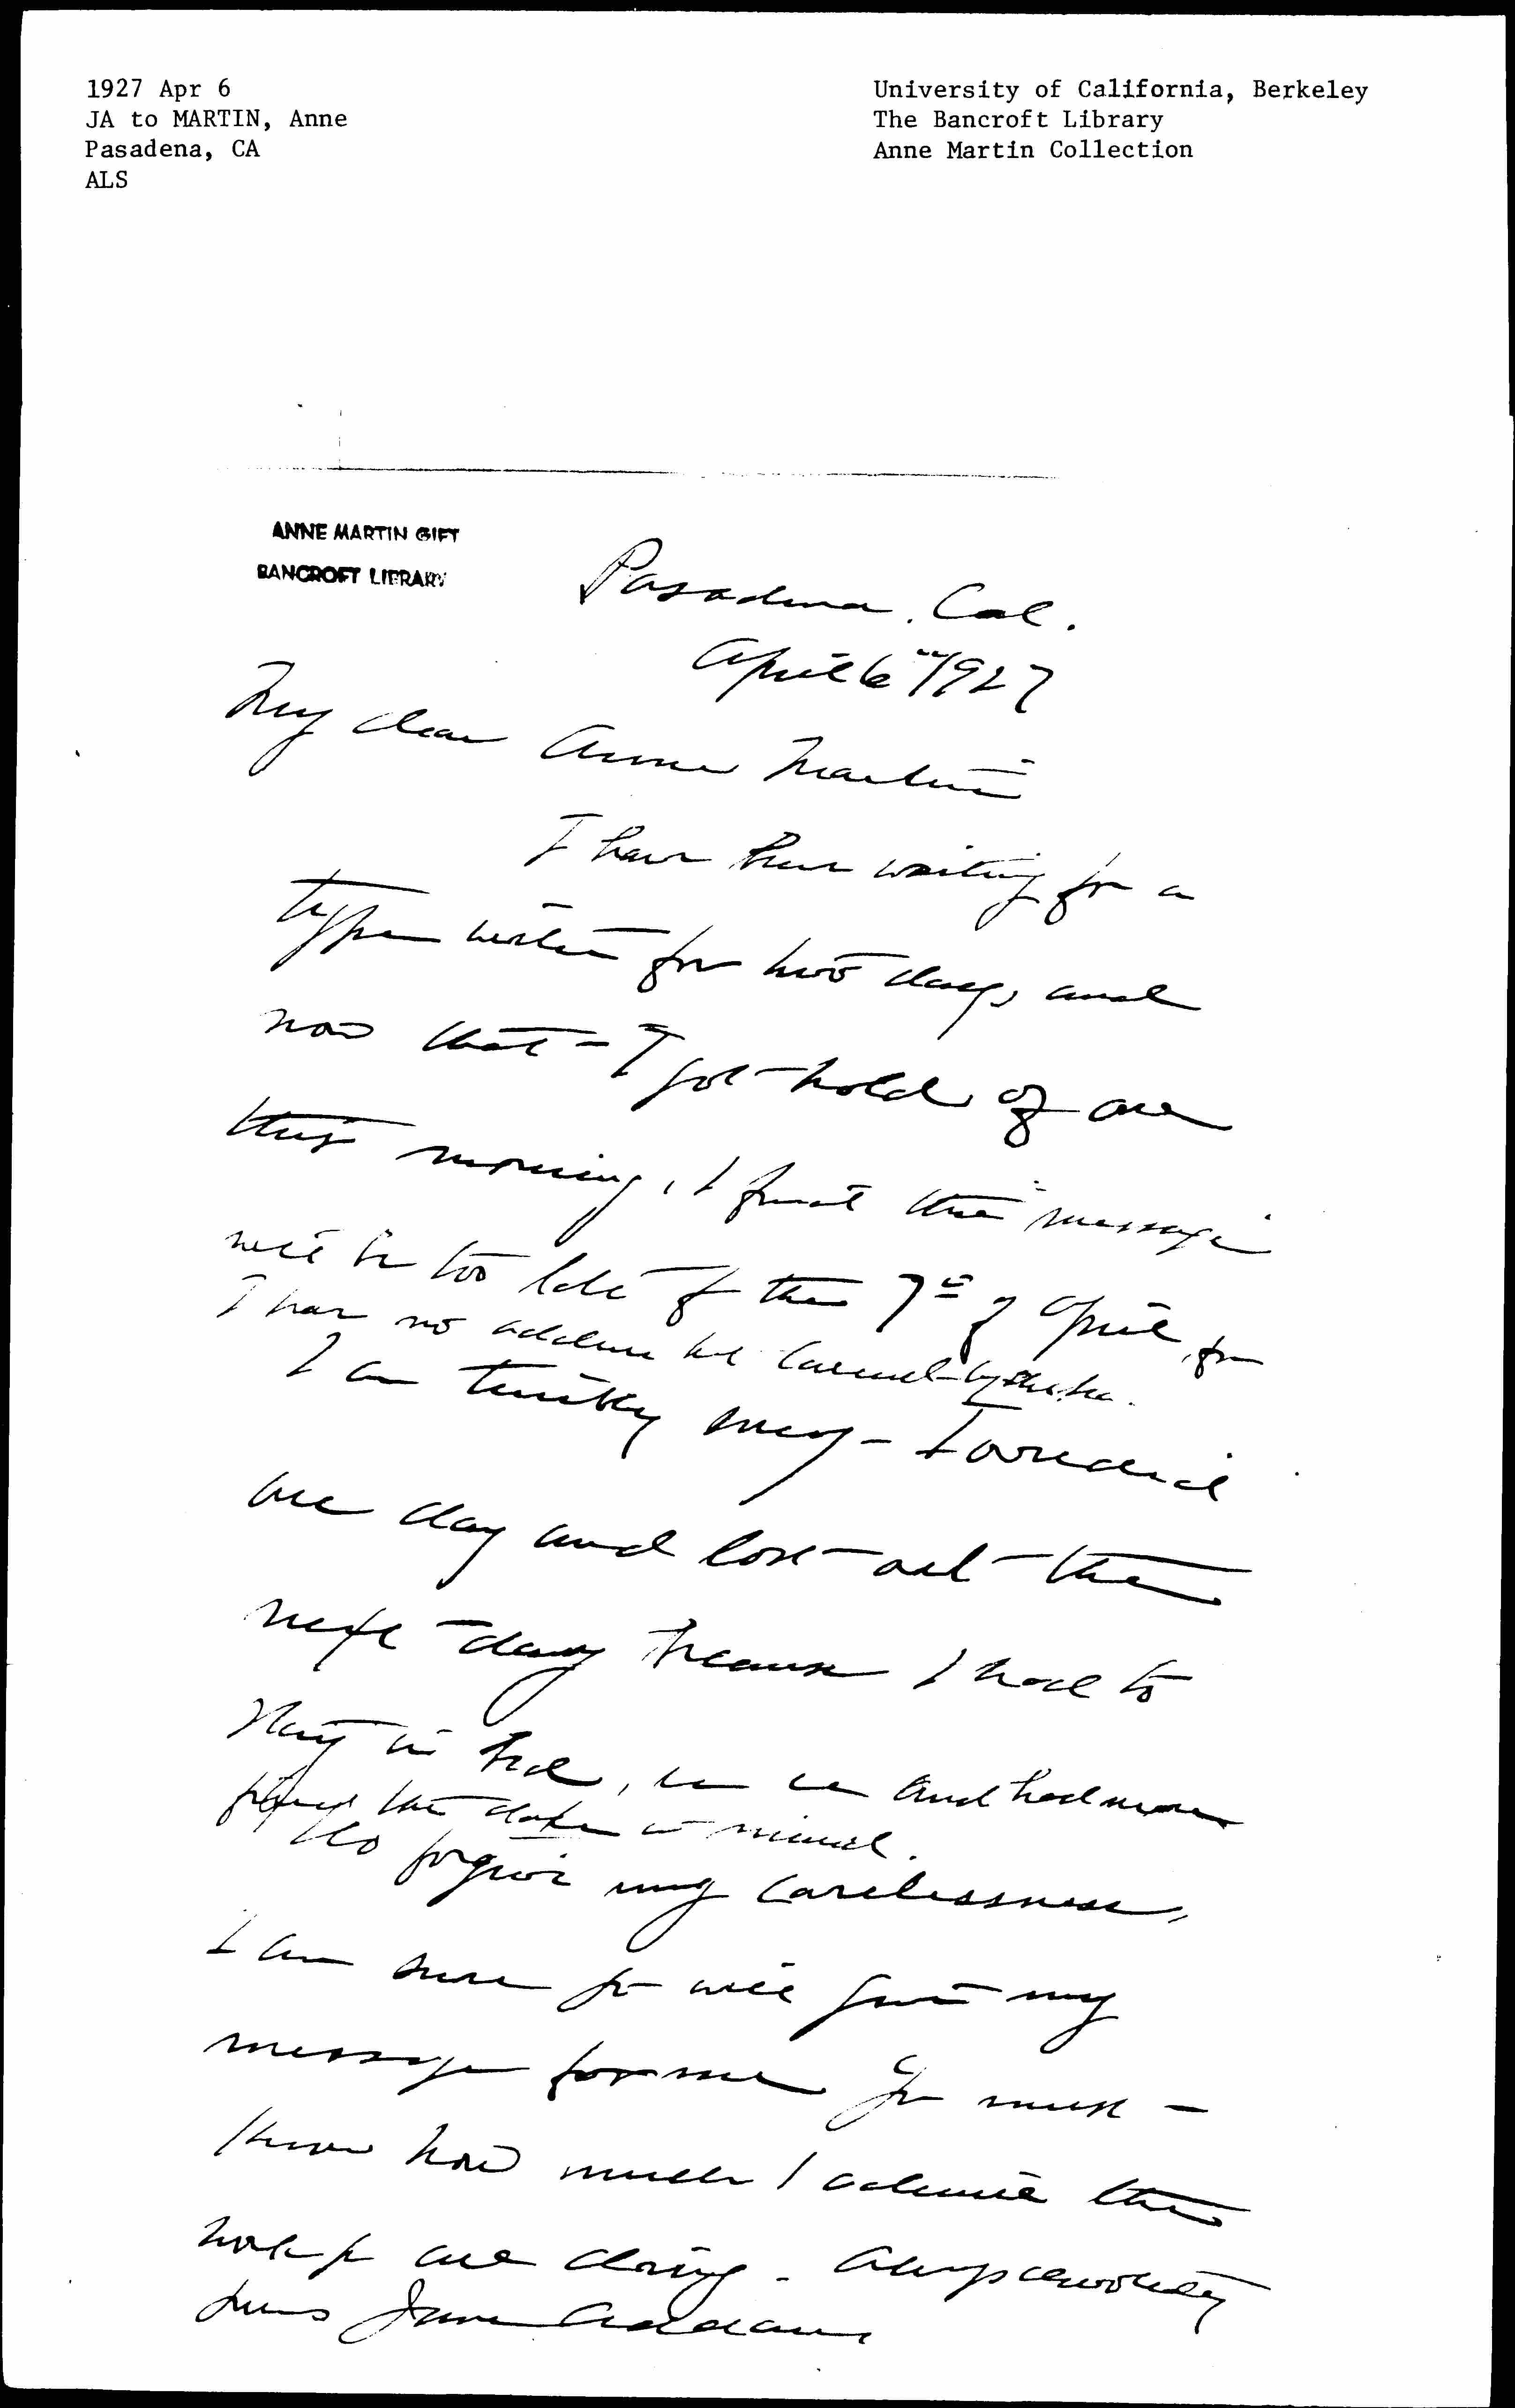 1927 Apr 6
JA to MARTIN, Anne
Pasadena, CA
ALS
University of California, Berkeley
The Bancroft Library
Anne Martin Collection
ANNE MARTIN GIFT
BANCROFT LIBRARY
Pasadena. Cal.
April 6" 1927
My dear Anne Martin
I have been waiting for a
type writer for two days, and
now that I got hold of one
this morning, I find the message
will be too late for the 7" of April, for
I have no address but Carmel-by-the-Sea.
I am terribly sorry - I
one day and lost out the
next day because I had to
stay in bed, and had never
the date in mind.
Do forgive my carelessness,
I am sure you will give my
message for me You must
know how much I admire the
work you are doing. Always devotedly
yours Jane Addams